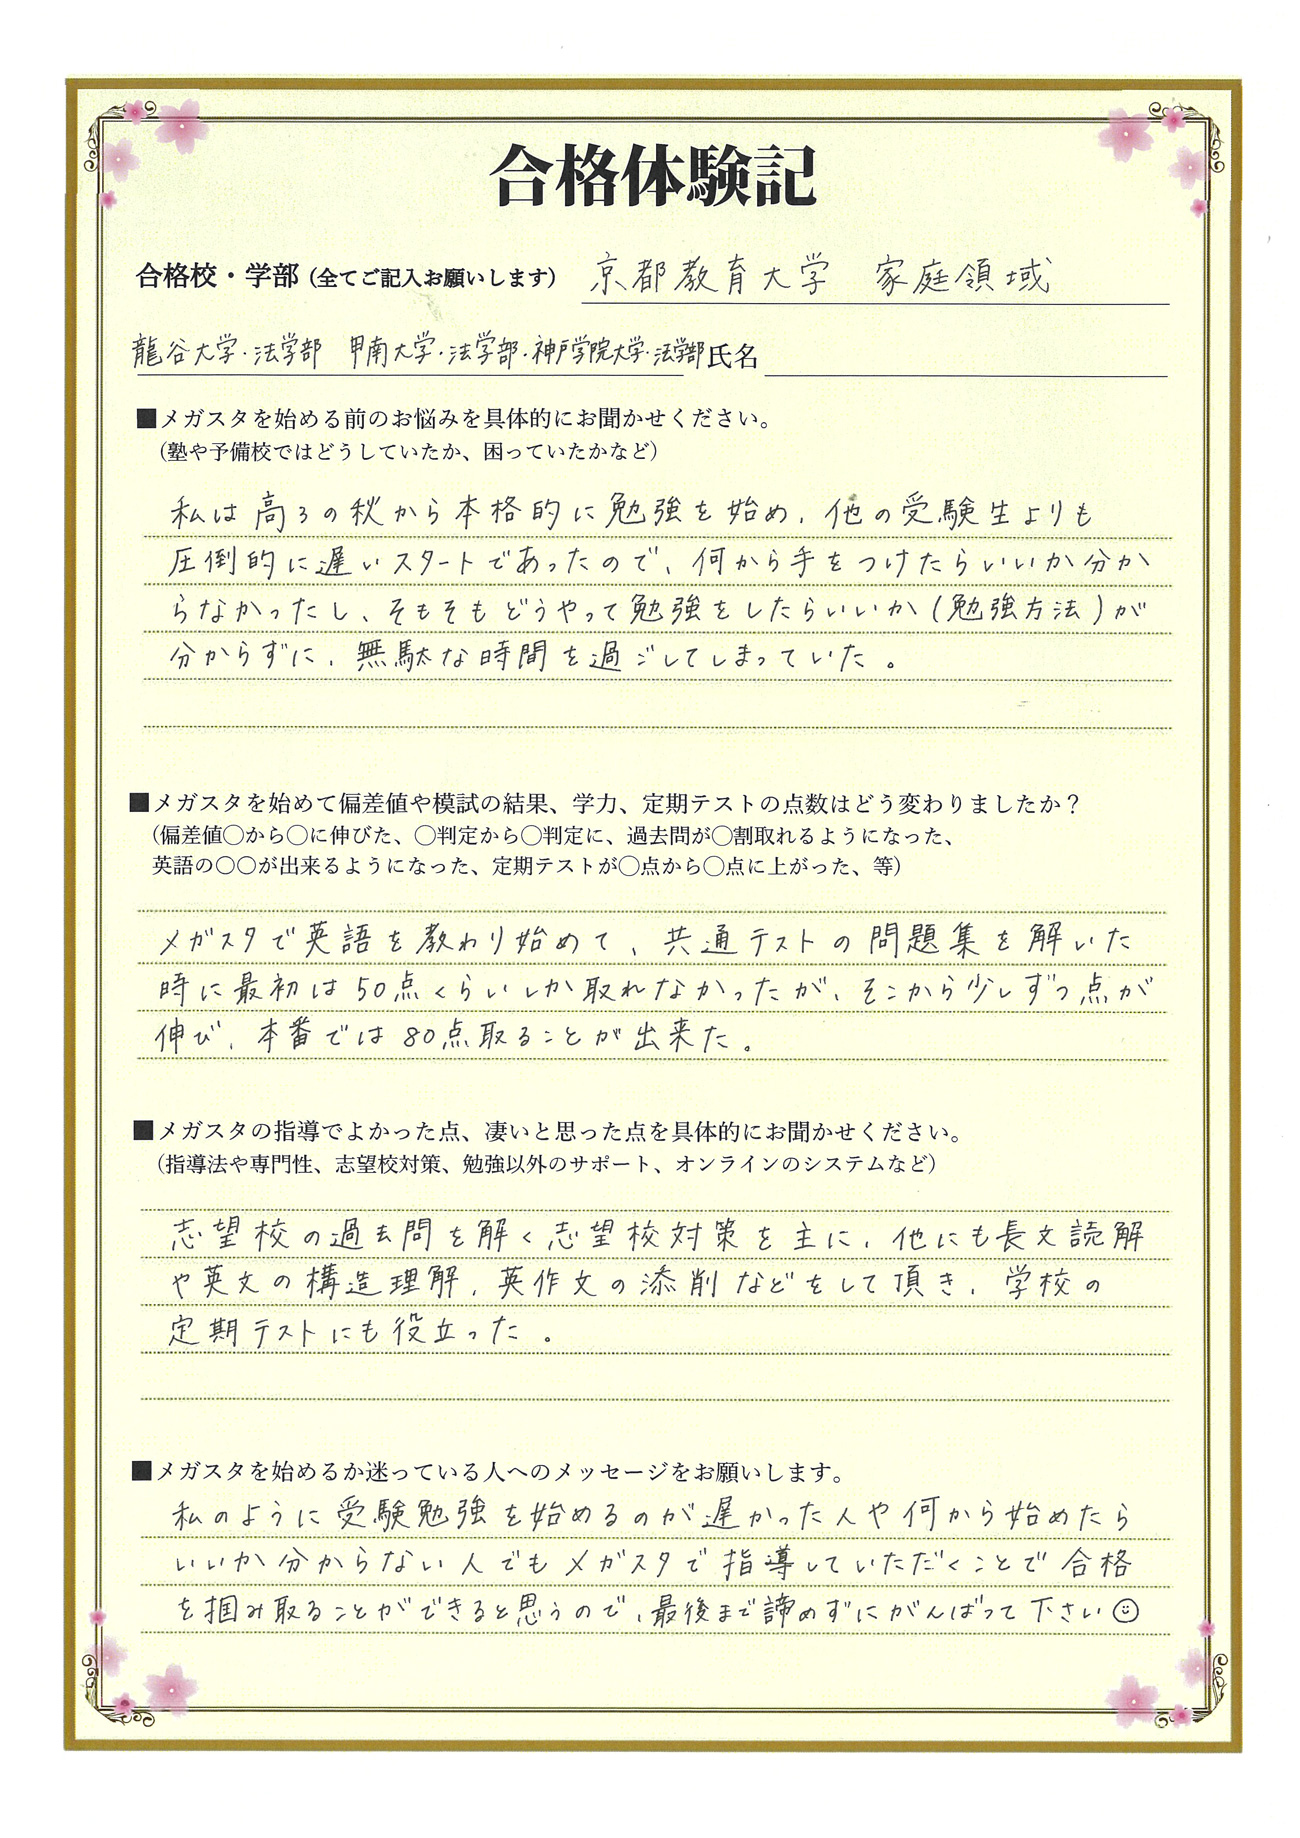 合格体験記
合格校・学部（全てご記入お願いします） 京都教育大学 家庭領域
龍谷大学・法学部 甲南大学・法学部・神戸学院大学・法学部 氏名
■メガスタを始める前のお悩みを具体的にお聞かせください。
（塾や予備校ではどうしていたか、困っていたかなど）
私は高3の秋から本格的に勉強を始め、他の受験生よりも
圧倒的に遅いスタートであったので、何から手をつけたらいいか分か
らなかったし、そもそもどうやって勉強をしたらいいか(勉強方法)が
分からずに、無駄な時間を過ごしてしまっていた。
■メガスタを始めて偏差値や模試の結果、学力、定期テストの点数はどう変わりましたか？
（偏差値〇から〇に伸びた、〇判定から〇判定に、過去問が〇割取れるようになった、
英語の〇〇が出来るようになった、定期テストが〇点から〇点に上がった、等）
メガスタで英語を教わり始めて、共通テストの問題集を解いた
時に最初は50点くらいしか取れなかったが、そこから少しずつ点が
伸び、本番では80点取ることが出来た。
■メガスタの指導でよかった点、凄いと思った点を具体的にお聞かせください。
（指導法や専門性、志望校対策、勉強以外のサポート、オンラインのシステムなど）
志望校の過去問を解く志望校対策を主に、他にも長文読解
や英文の構造理解、英作文の添削などをして頂き、学校の
定期テストにも役立った。
■メガスタを始めるか迷っている人へのメッセージをお願いします。
私のように受験勉強を始めるのが遅かった人や何から始めたら
いいか分からない人でもメガスタで指導していただくことで合格
を掴み取ることができると思うので、最後まで諦めずにがんばって下さい☺